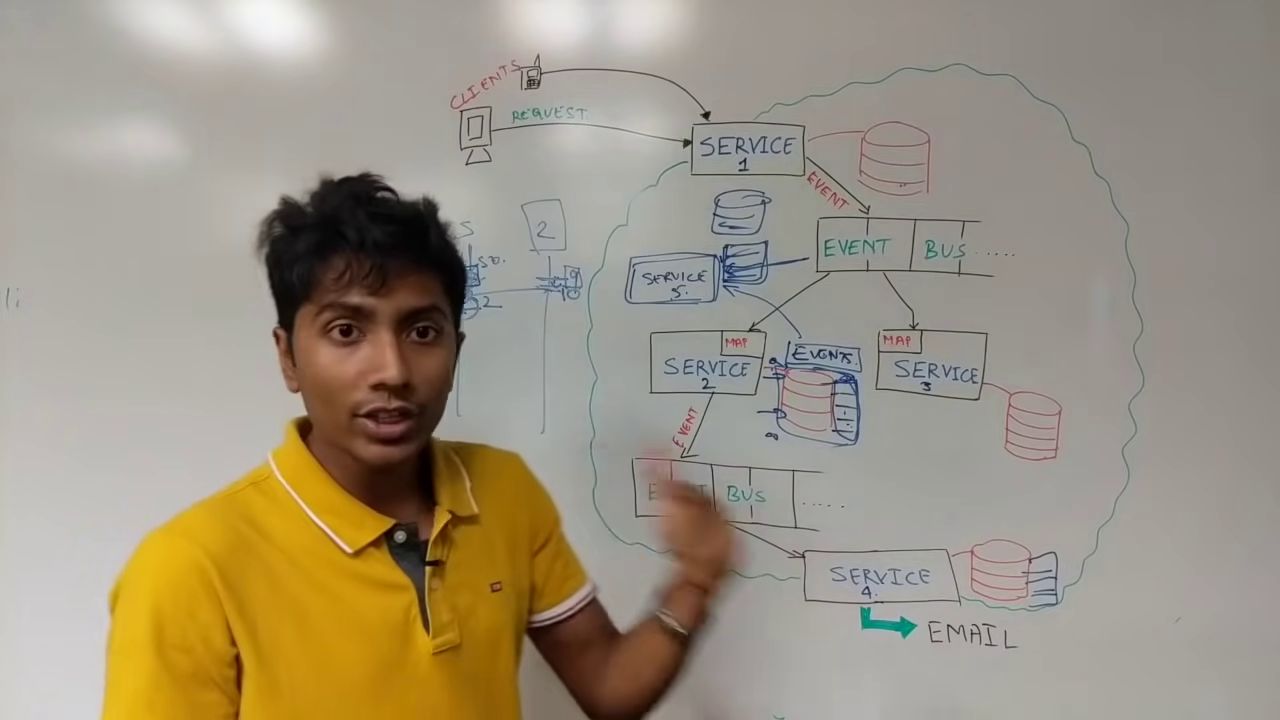 CLIENTS
REQUEST
SERVICE
1
EVENT
EVENT BUS .....
S
2
50.
9
10
SERVICE
5.
MAP
SERVICE
2
EVENTS.
MAP
SERVICE
3
EVENT
BUS .....
SERVICE
4.
EMAIL